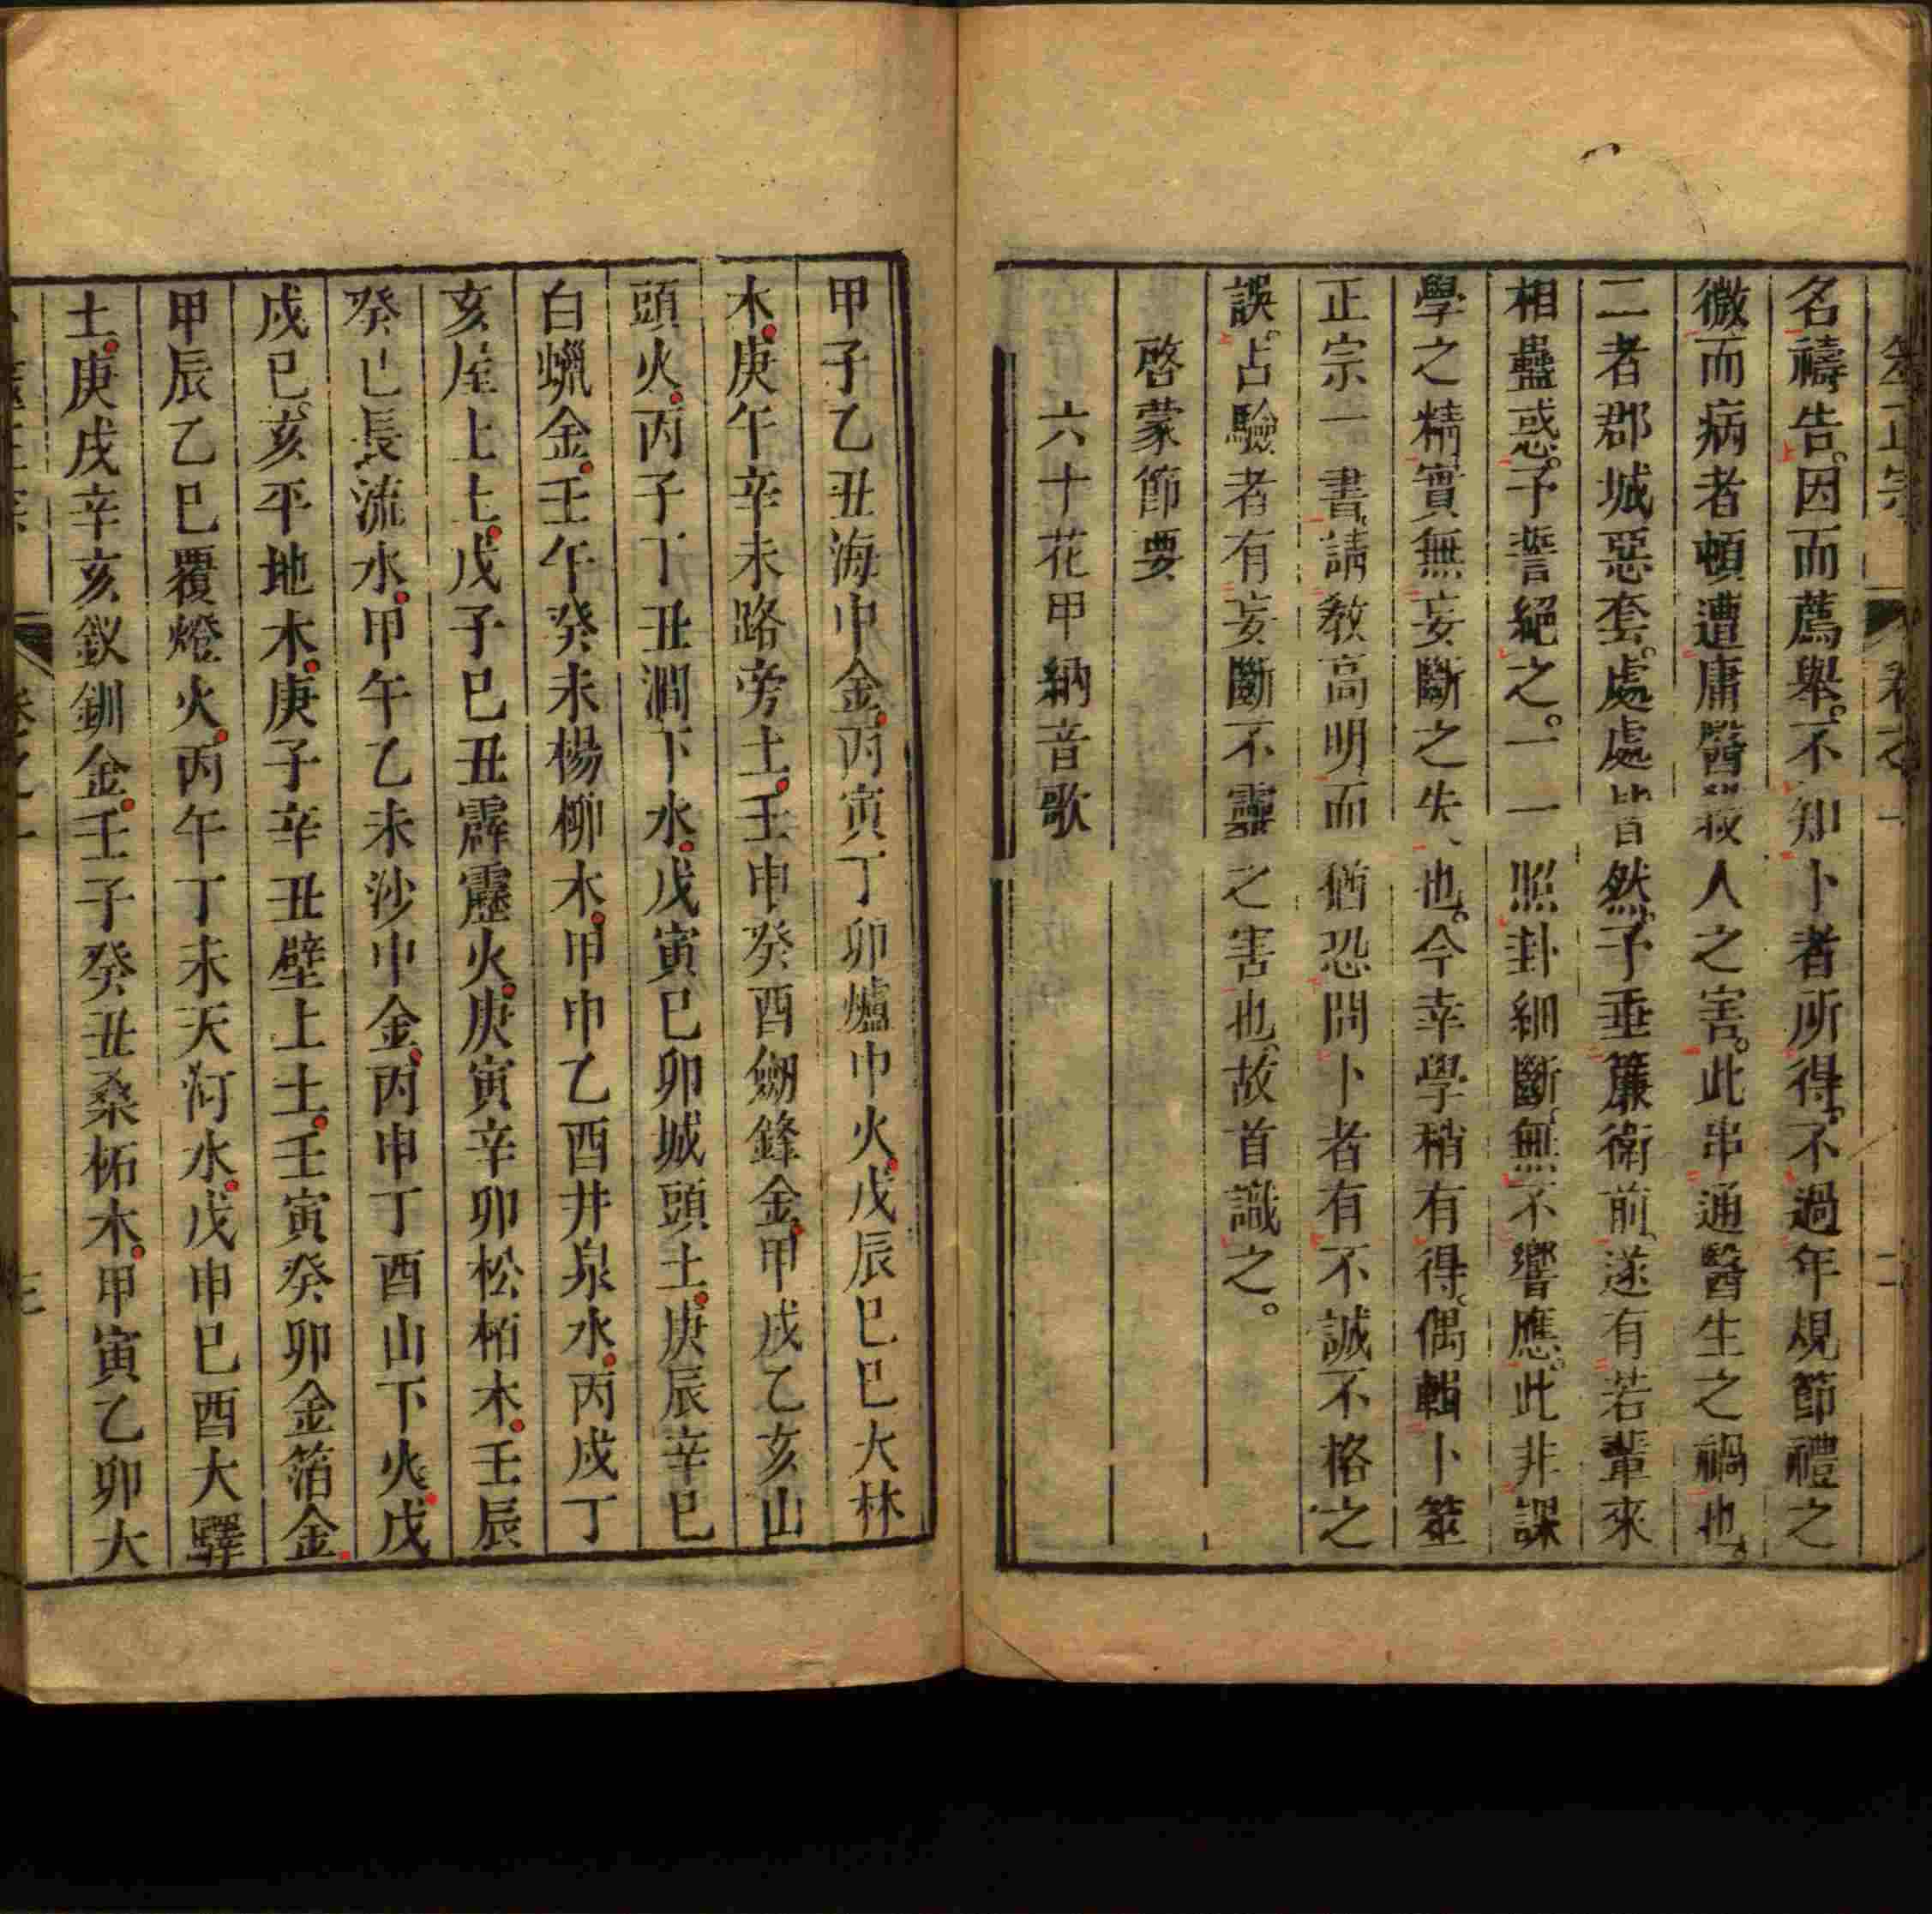 筮正宗 卷之一 二
名禱告。因而薦舉。不知卜者所得。不過年規節禮之
微、而病者頓遭庸醫殺人之害。此串通醫生之禍也。
二者郡城惡套。處處皆然、予垂簾衛前、遂有若輩來
相蠱惑。予誓絕之。一一照卦細斷、無不響應。此非課
學之精實無妄斷之失、也。今幸學稍有得。偶輯卜筮
正宗一書、請教高明、而猶恐問卜者有不誠不格之
誤。占驗者有妄斷不靈之害也、故首識之。
啓蒙節要
六十花甲納音歌
甲子乙丑海中金。丙寅丁卯爐中火。戊辰己巳大林
木。庚午辛未路旁土。壬申癸酉劒鋒金。甲戌乙亥山
頭火。丙子丁丑澗下水。戊寅己卯城頭土。庚辰辛巳
白蠟金。壬午癸未楊柳木。甲申乙酉井泉水。丙戌丁
亥屋上土。戊子己丑霹靂火。庚寅辛卯松栢木。壬辰
癸巳長流水。甲午乙未沙中金。丙申丁酉山下火。戊
戌己亥平地木。庚子辛丑壁上土。壬寅癸卯金箔金。
甲辰乙巳覆燈火。丙午丁未天河水。戊申己酉大驛
土。庚戌辛亥釵釧金。壬子癸丑桑柘木。甲寅乙卯大
卷之一 三